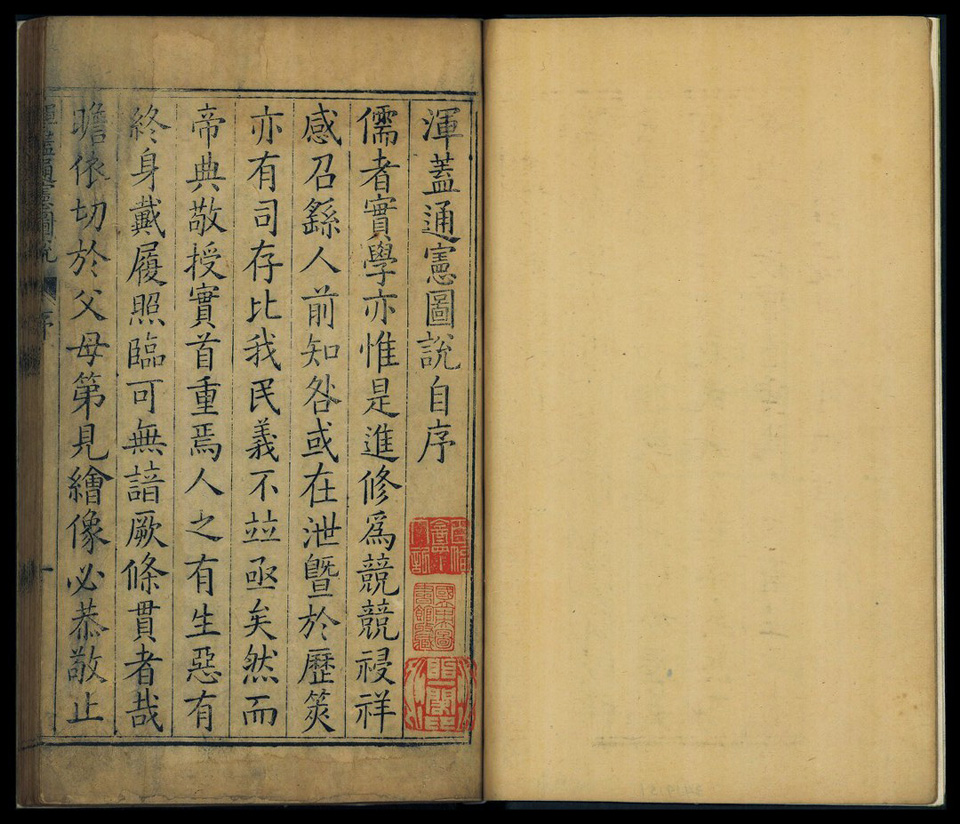 渾蓋通憲圖說自序
儒者實學亦惟是進修爲競競祲祥
感召繇人前知咎或在泄曁於歷筴
亦有司存比我民義不竝亟矣然而
帝典敬授實首重焉人之有生惡有
終身戴履照臨可無諳厥條貫者哉
瞻依切於父母第見繪像必恭敬止
渾蓋通憲圖說 序 一